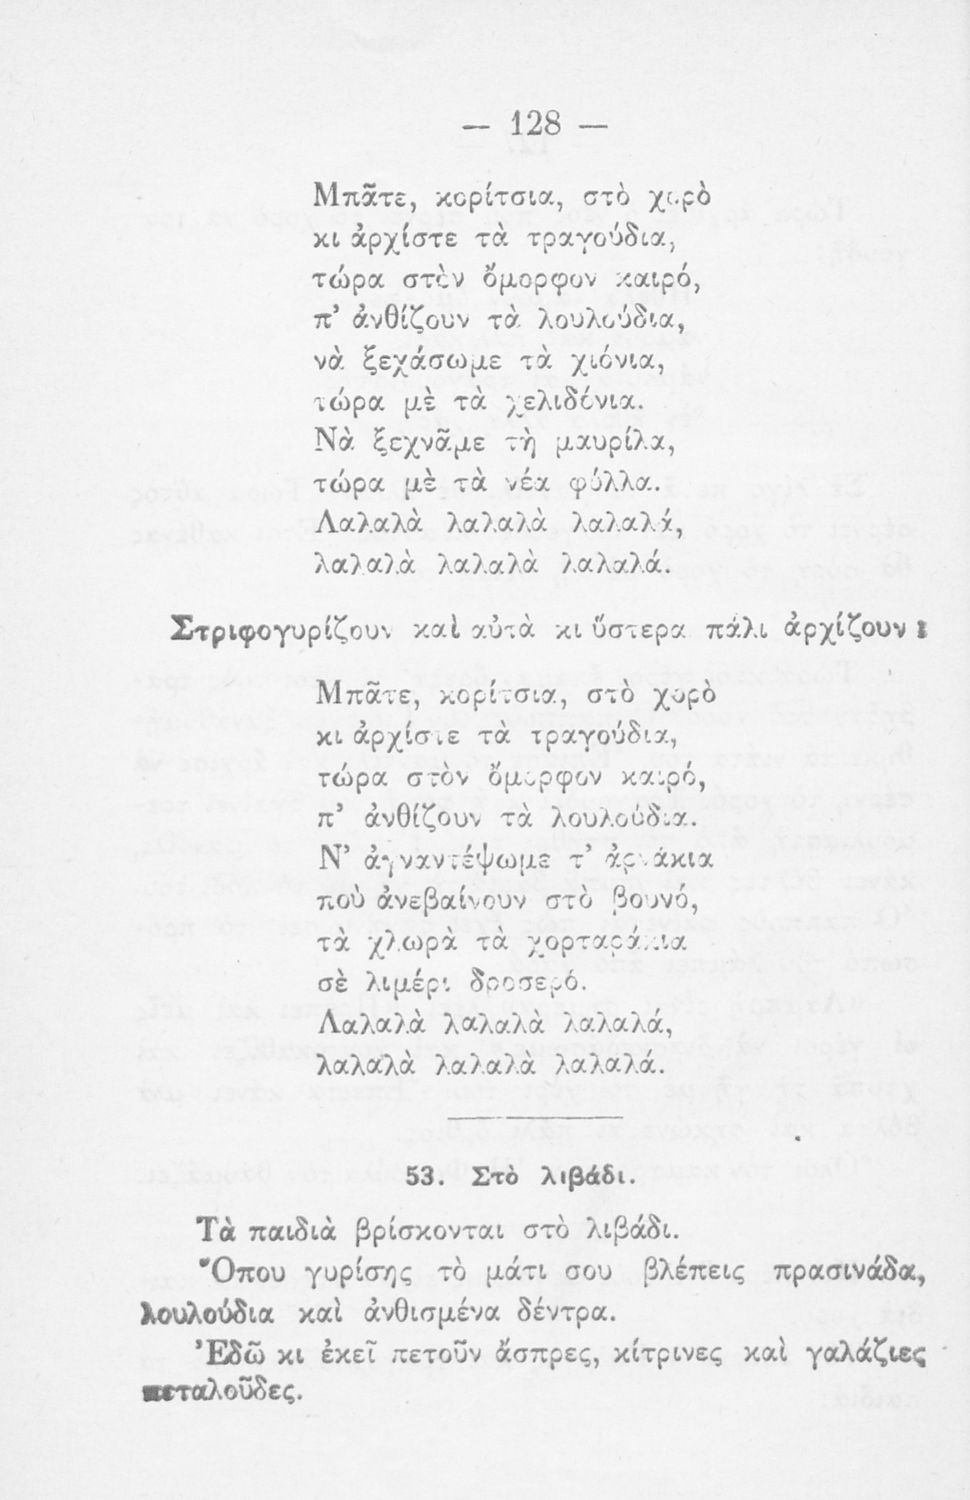 — 128 —
Μπᾶτε, κορίτσια, στὸ χορὸ
κι ἀρχίστε τὰ τραγούδια,
τώρα στὸν ὄμορφον καιρό,
π’ ἀνθίζουν τὰ λουλούδια,
νὰ ξεχάσωμε τὰ χιόνια,
τώρα μὲ τὰ χελιδόνια.
Νὰ ξεχνᾶμε τὴ μαυρίλα,
τώρα μὲ τὰ νέα φύλλα.
Λαλαλὰ λαλαλὰ λαλαλά,
λαλαλὰ λαλαλὰ λαλαλά.
Στριφογυρίζουν καὶ αὐτὰ κι ὕστερα πάλι ἀρχίζουν :
Μπᾶτε, κορίτσια, στὸ χορὸ
κι ἀρχίστε τὰ τραγούδια,
τώρα στὸν ὄμορφον καιρό,
π’ ἀνθίζουν τὰ λουλούδια.
Ν’ ἀγναντέψωμε τ’ ἀρνάκια
ποὺ ἀνεβαίνουν στὸ βουνό,
τὰ χλωρὰ τὰ χορταράκια
σὲ λιμέρι δροσερό.
Λαλαλὰ λαλαλὰ λαλαλά,
λαλαλὰ λαλαλὰ λαλαλά.
53. Στὸ λιβάδι.
Τὰ παιδιὰ βρίσκονται στὸ λιβάδι.
Ὅπου γυρίσῃς τὸ μάτι σου βλέπεις πρασινάδα,
λουλούδια καὶ ἀνθισμένα δέντρα.
Ἐδῶ κι ἐκεῖ πετοῦν ἄσπρες, κίτρινες καὶ γαλάζιες
πεταλοῦδες.